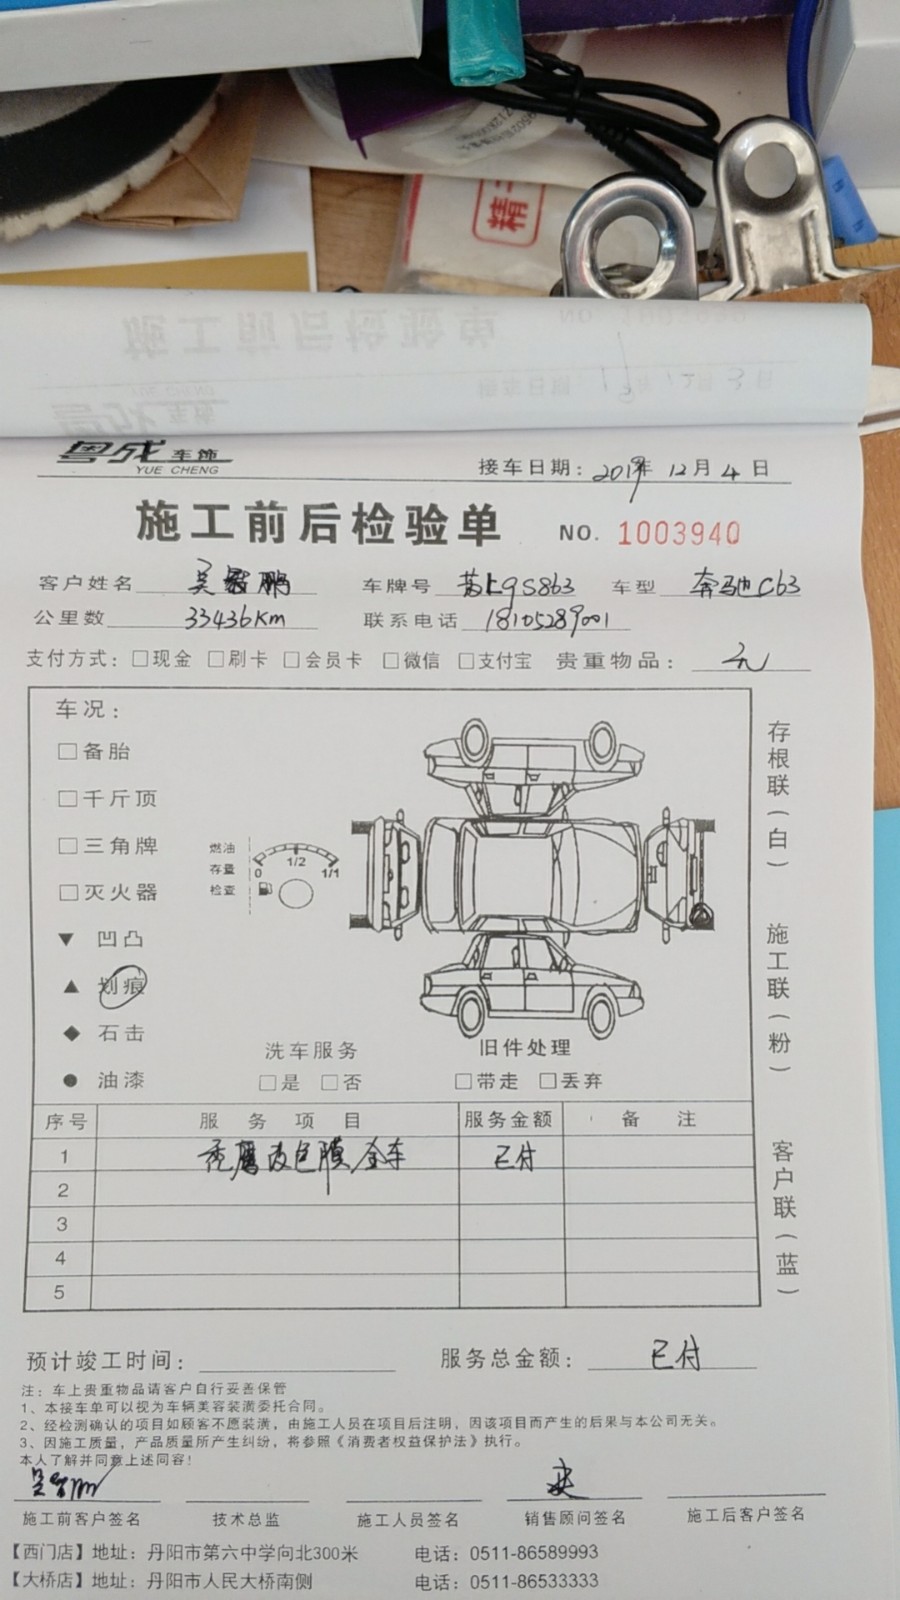 精
粤成车饰
YUE CHENG
接车日期：2019年 12月 4日
施工前后检验单 NO. 1003940
客户姓名 吴 鹏 车牌号 苏L9S863 车型 奔驰C63
公里数 33436Km 联系电话 18105289001
支付方式：□现金 □刷卡 □会员卡 □微信 □支付宝 贵重物品：无
车况：
□备胎
□千斤顶
□三角牌
□灭火器
燃油
存量
检查
0 1/2 1/1
▼ 凹凸
▲ 划痕
◆ 石击
● 油漆
洗车服务
□是 □否
旧件处理
□带走 □丢弃
存根联（白）
施工联（粉）
客户联（蓝）
序号 服务项目 服务金额 备注
1 秃鹰改色膜全车 已付
2
3
4
5
预计竣工时间： 服务总金额：已付
注：车上贵重物品请客户自行妥善保管
1、本接车单可以视为车辆美容装潢委托合同。
2、经检测确认的项目如顾客不愿装潢，由施工人员在项目后注明，因该项目而产生的后果与本公司无关。
3、因施工质量，产品质量所产生纠纷，将参照《消费者权益保护法》执行。
本人了解并同意上述同容！
施工前客户签名 技术总监 施工人员签名 销售顾问签名 施工后客户签名
【西门店】地址：丹阳市第六中学向北300米 电话：0511-86589993
【大桥店】地址：丹阳市人民大桥南侧 电话：0511-86533333